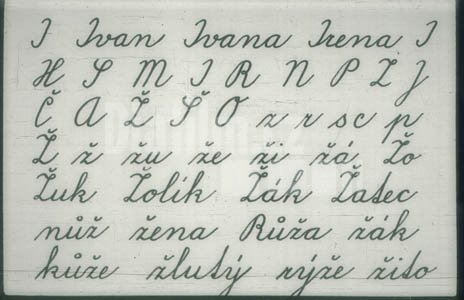 I Ivan Ivana Irena I
H S M I R N P Z J
Č A Ž Š O z r sc p
Ž ž žu že ži žá Žo
Žuk Žolík Žák Žatec
nůž žena Růža žák
kůže žlutý rýže žito